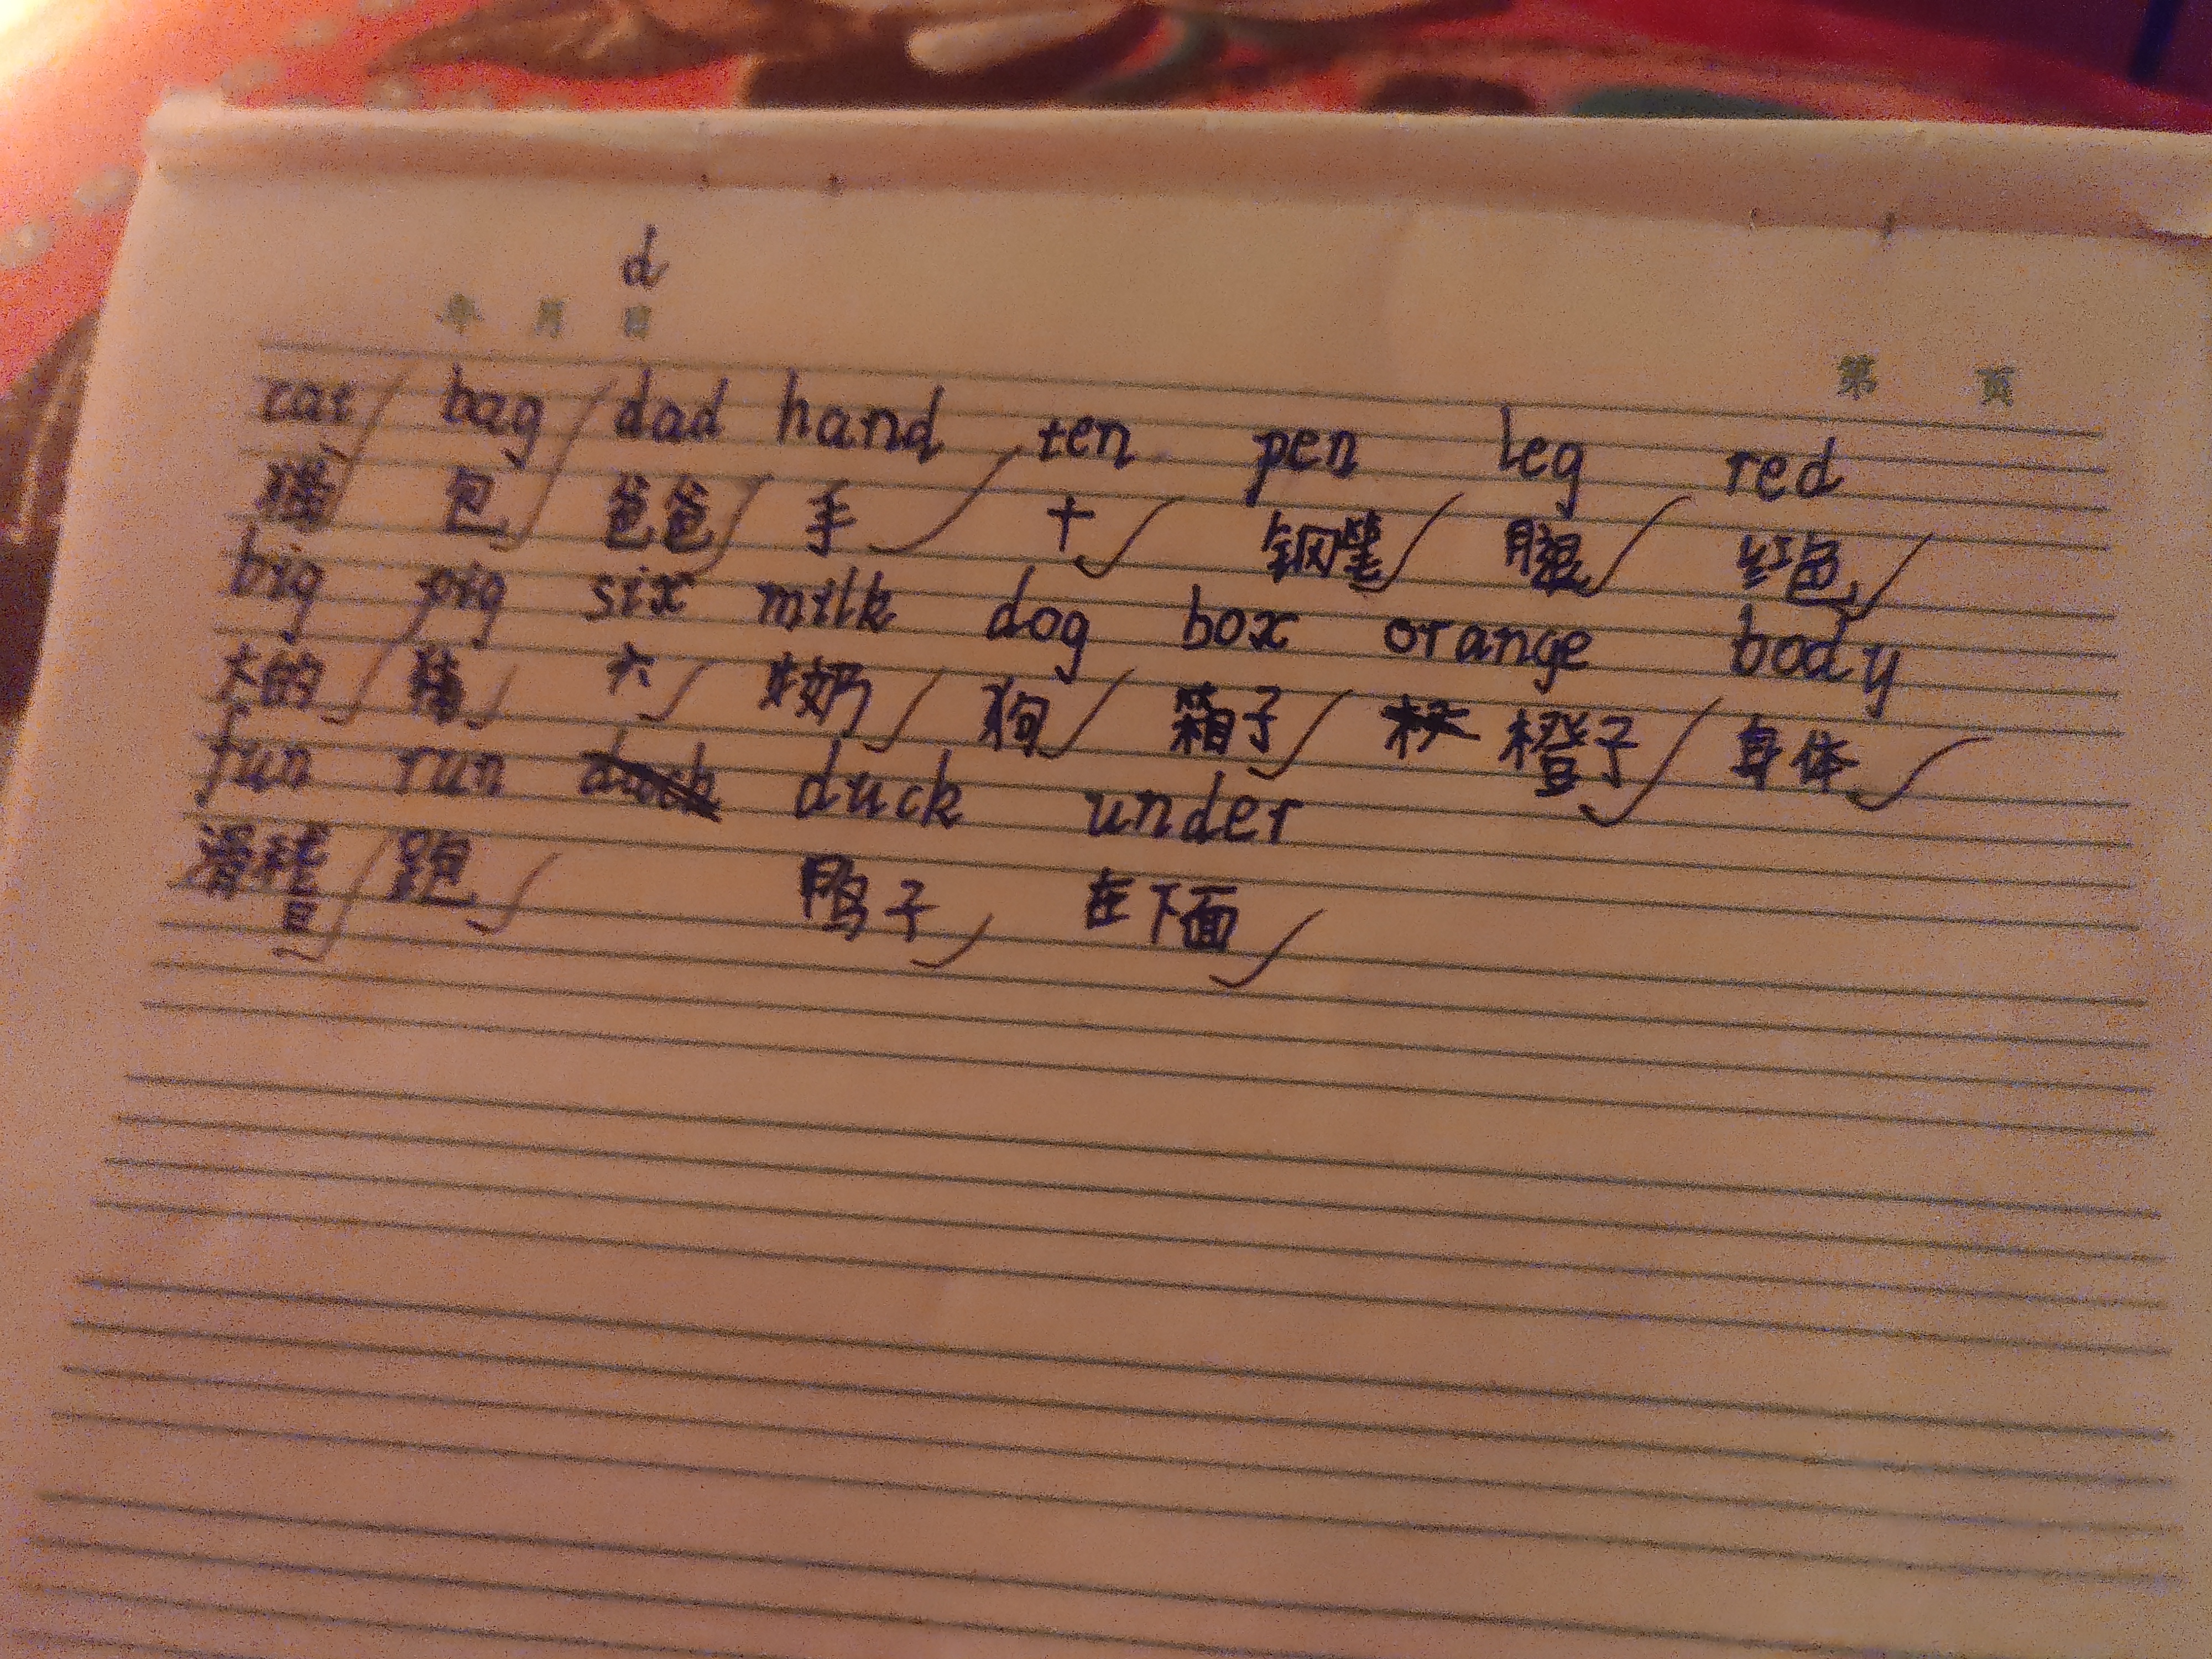 d
年 月 日
第 页
cat bag dad hand ten pen leg red
猫 包 爸爸 手 十 钢笔 腿 红色
big pig six milk dog box orange body
大的 猪 六 牛奶 狗 箱子 橙子 身体
fun run duck under
滑稽 跑 鸭子 在下面